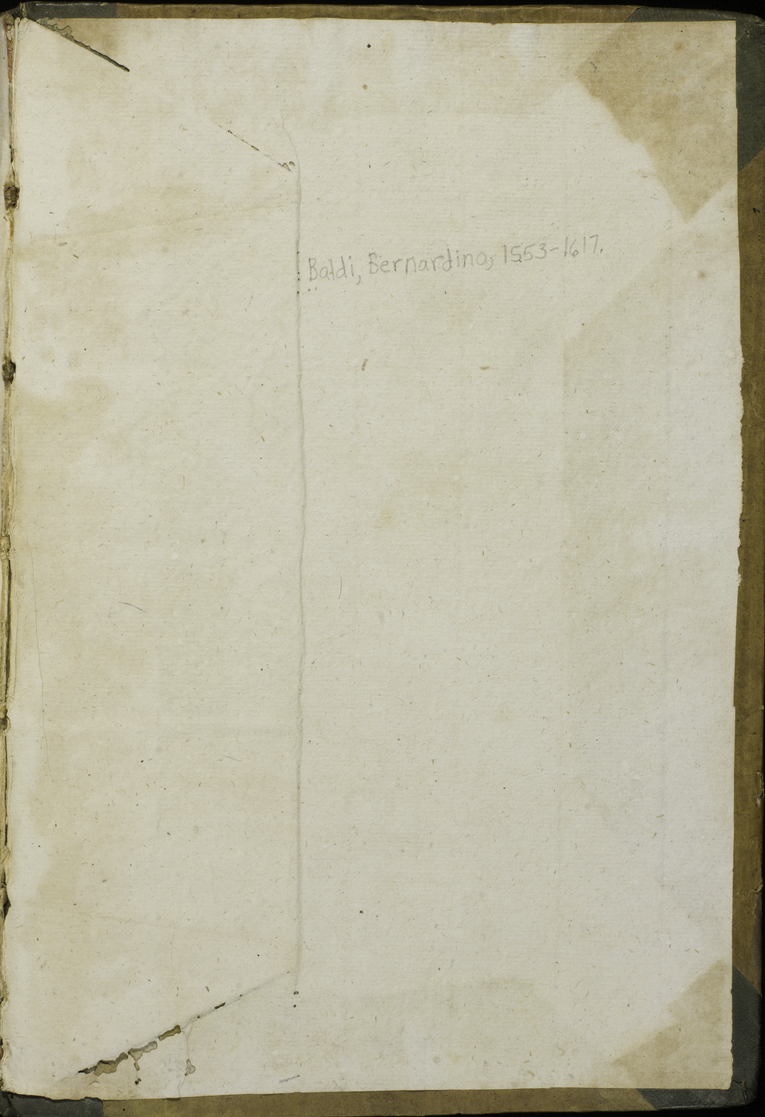 Baldi, Bernardino, 1553-1617.